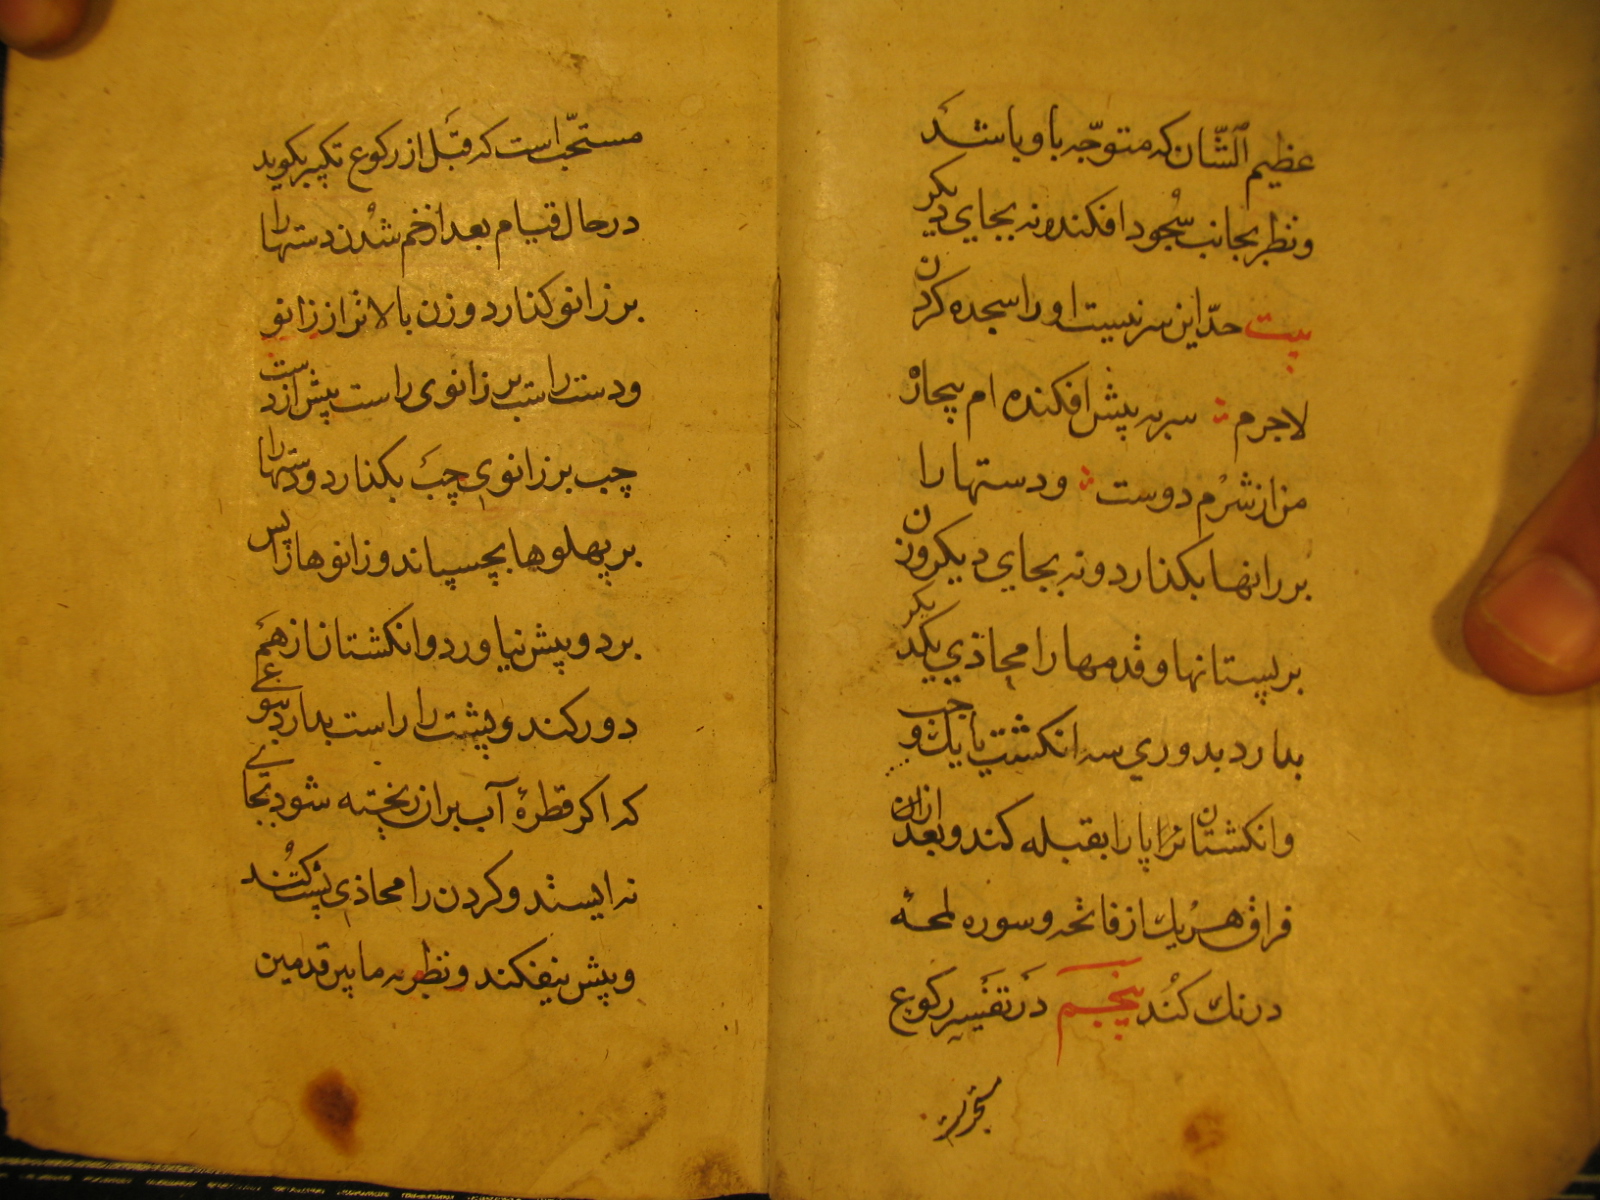 عظیم الشّان که متوجّه باو باشد
ونظر بجانب سجود افکند ونه بجای دیکر
بیت حدّ این سر نیست او را سجده کردن
لاجرم سر به پیش افکنده ام بیچاره
من از شرم دوست ودستها را
بر رانها بکذارد ونه بجای دیکر وزن
بر پستانها وقدمها را محاذی یکدیکر
بدارد بدوری سه انکشت یا یک وجب
وانکشتان پا را بقبله کند وبعد ازان
فراق هریک از فاتحه وسوره لمحه
درنک کند پنجم در تفسیر رکوع
مستحب است
مستحبّ است که قبل از رکوع تکبیر بکوید
در حال قیام بعد از خم شدن دستها را
بر زانو کذارد وزن بالاتر از زانو
ودست راست بر زانوی راست پیش از دست
چب بر زانوی چب بکذارد ودستها را
بر پهلوها بچسپاند وزانوها را پس
برد وپیش نیاورد وانکشتان از هم
دور کند وپشت را راست بدارد بنوعی
که اکر قطرهٔ آب بران ریخته شود بجای
نه ایستد وکردن را محاذی پشت کند
وپیش نیفکند ونظر به ما بین قدمین